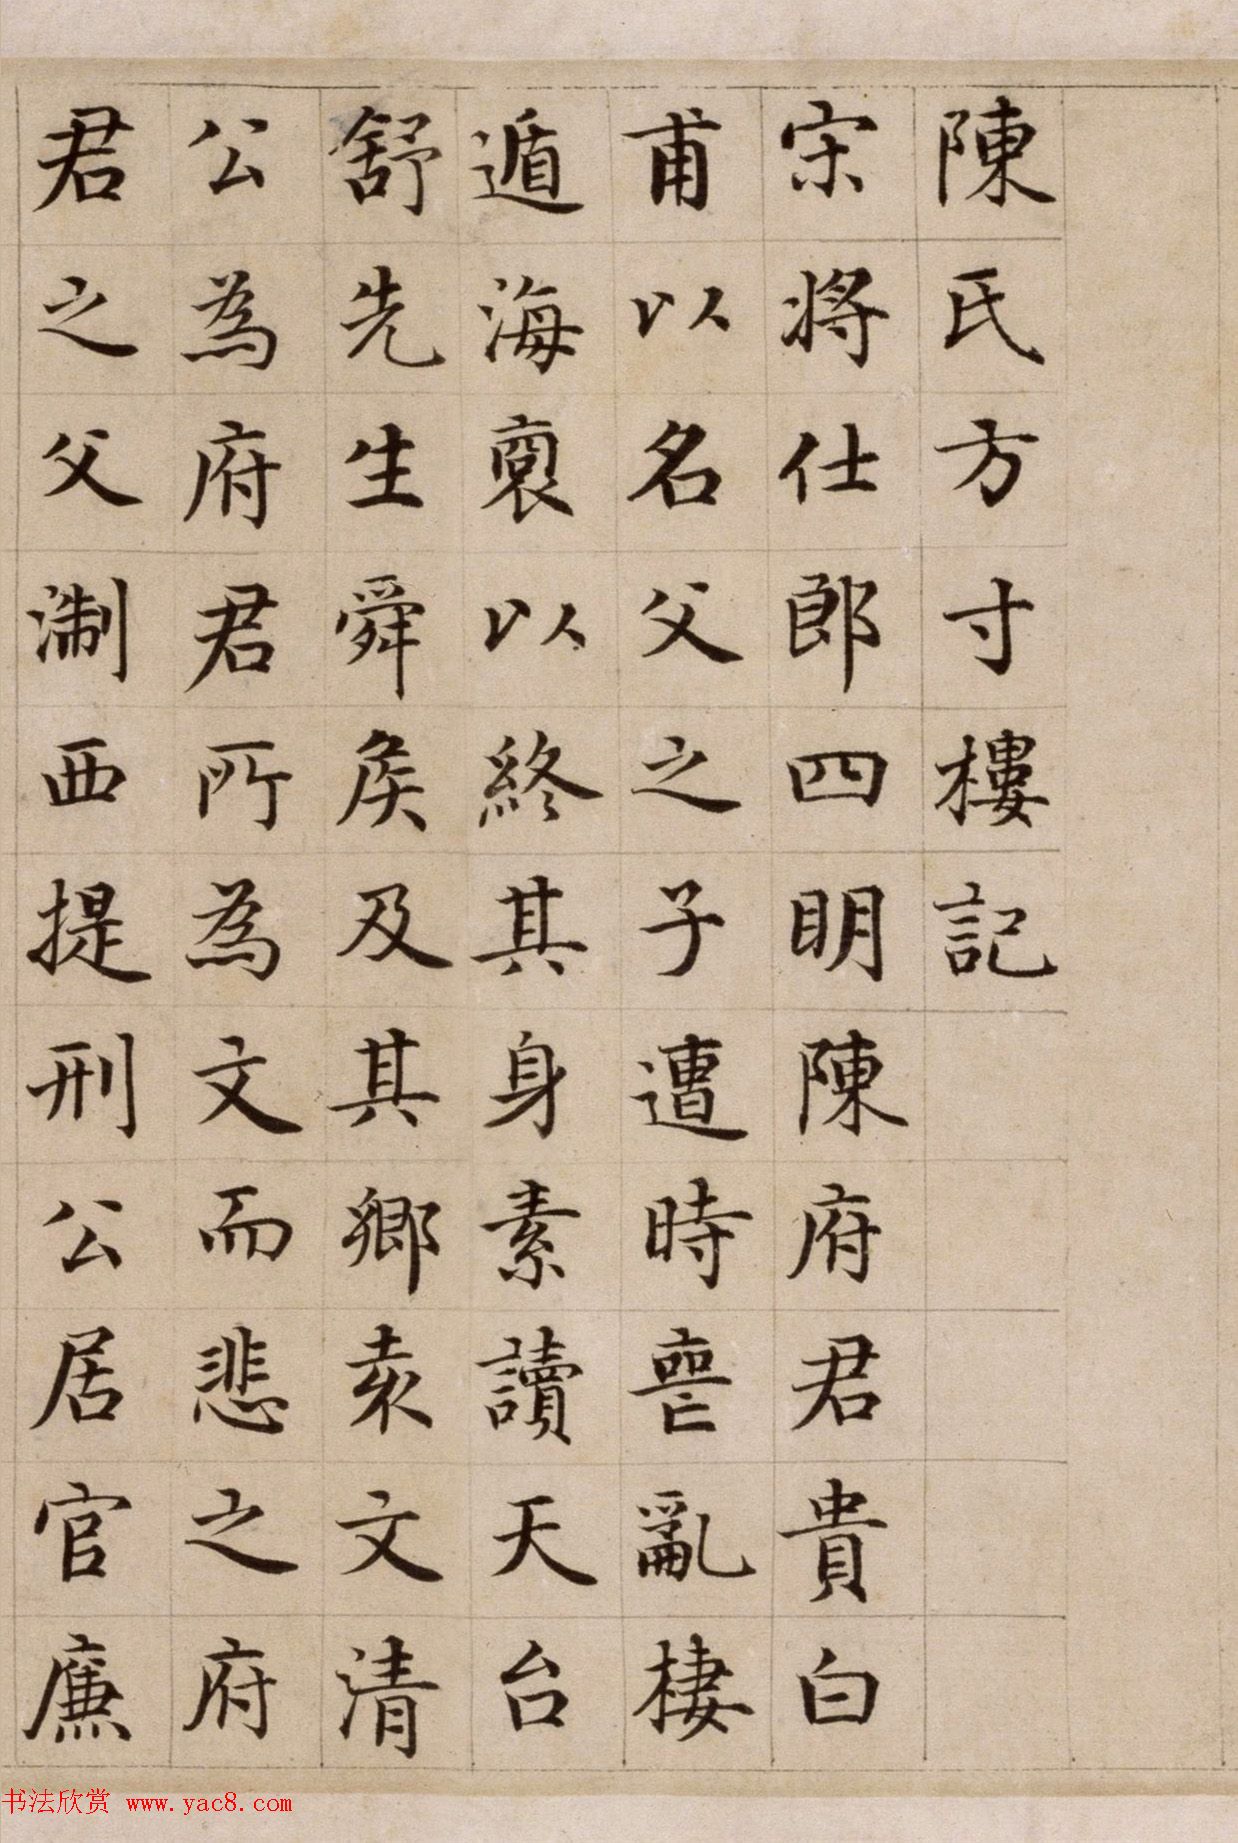 陳氏方寸樓記
宋將仕郎四明陳府君貴白
甫以名父之子遭時喪亂棲
遁海裏以終其身素讀天台
舒先生舜矦及其鄉袁文清
公為府君所為文而悲之府
君之父淛西提刑公居官廉
书法欣赏 www.yac8.com